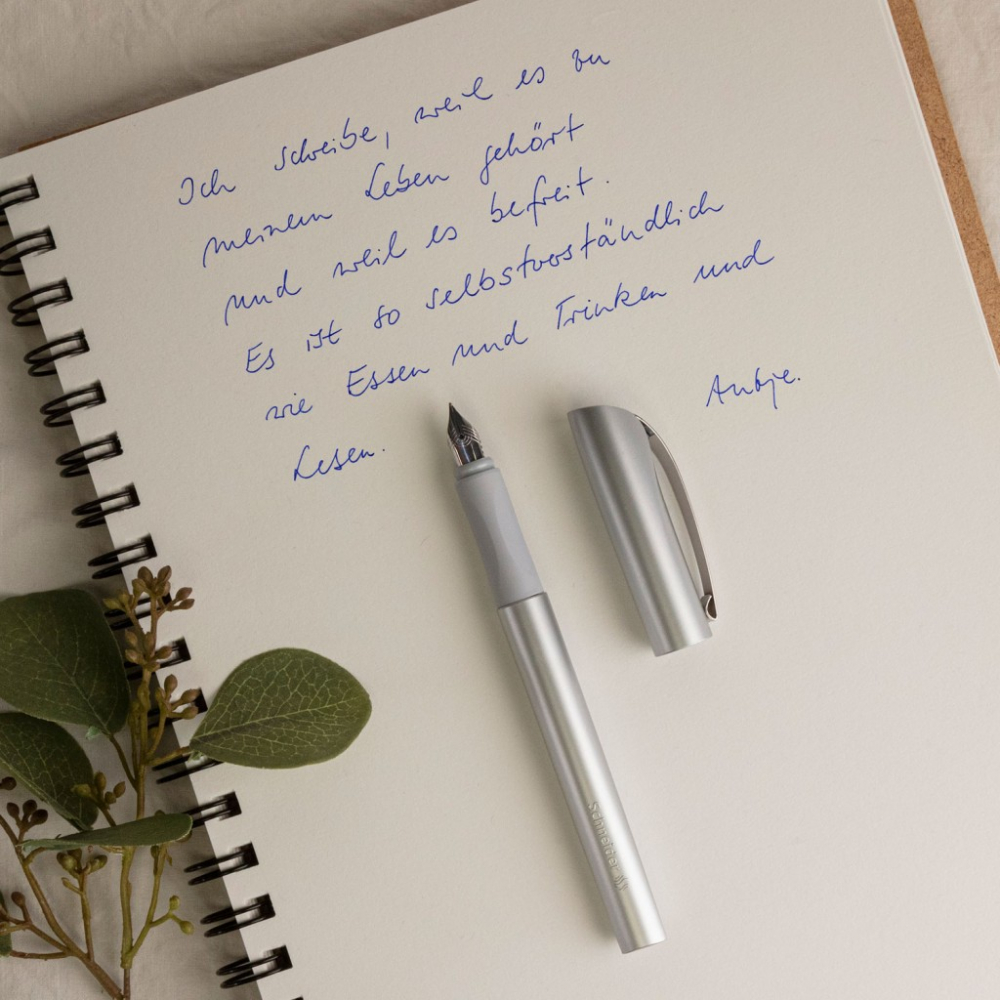 Ich schreibe, weil es zu
meinem Leben gehört
und weil es befreit.
Es ist so selbstverständlich
wie Essen und Trinken und
Lesen.
Antje.
Schneider